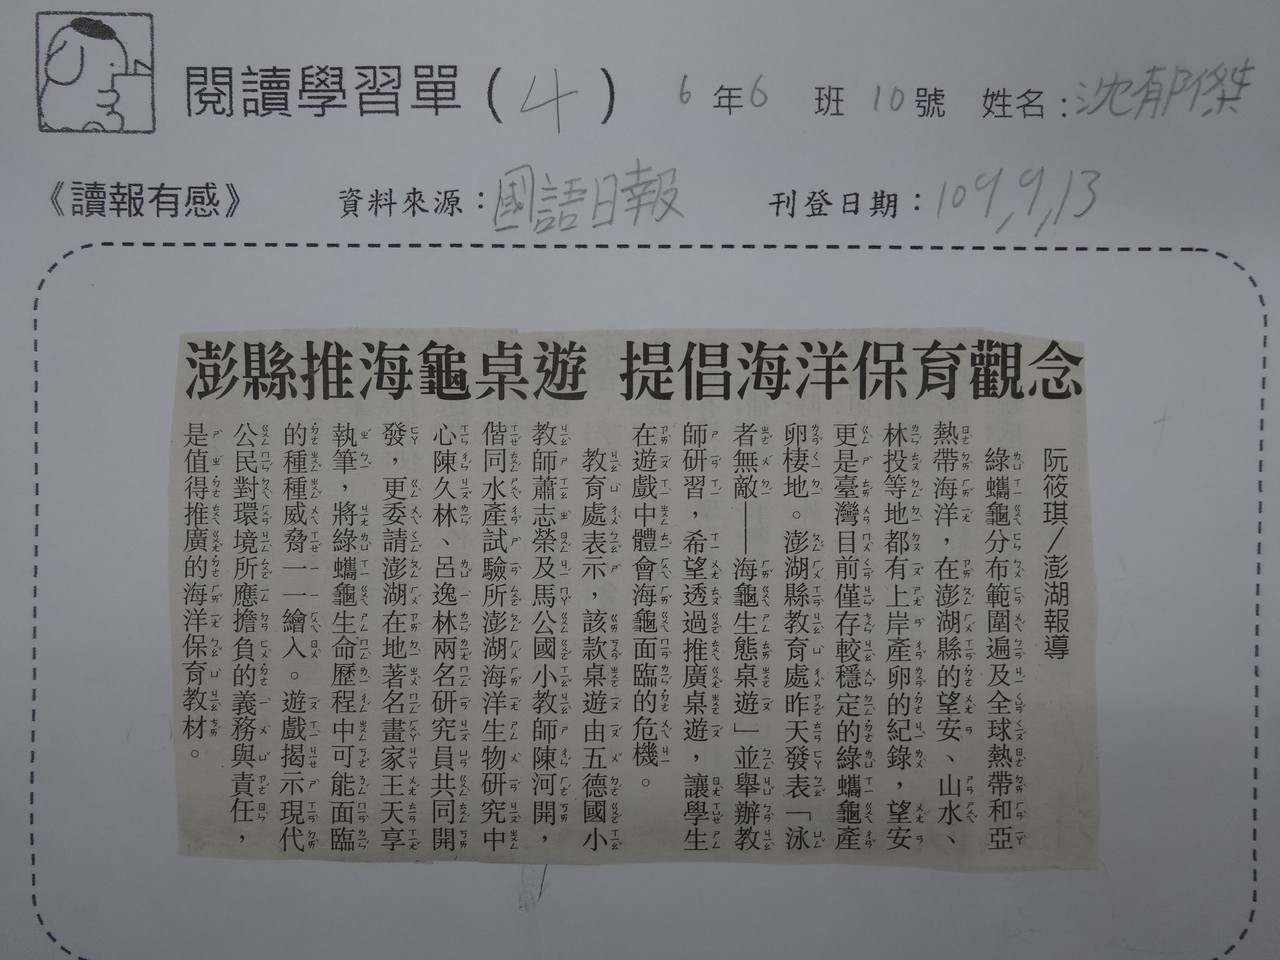 閱讀學習單(4) 6年6班10號 姓名:沈郁傑
《讀報有感》 資料來源:國語日報 刊登日期:109,9,13
澎縣推海龜桌遊 提倡海洋保育觀念
阮筱琪／澎湖報導
綠蠵龜分布範圍遍及全球熱帶和亞
熱帶海洋，在澎湖縣的望安、山水、
林投等地都有上岸產卵的紀錄，望安
更是臺灣目前僅存較穩定的綠蠵龜產
卵棲地。澎湖縣教育處昨天發表「泳
者無敵——海龜生態桌遊」並舉辦教
師研習，希望透過推廣桌遊，讓學生
在遊戲中體會海龜面臨的危機。
教育處表示，該款桌遊由五德國小
教師蕭志榮及馬公國小教師陳河開，
偕同水產試驗所澎湖海洋生物研究中
心陳久林、呂逸林兩名研究員共同開
發，更委請澎湖在地著名畫家王天享
執筆，將綠蠵龜生命歷程中可能面臨
的種種威脅一一繪入。遊戲揭示現代
公民對環境所應擔負的義務與責任，
是值得推廣的海洋保育教材。